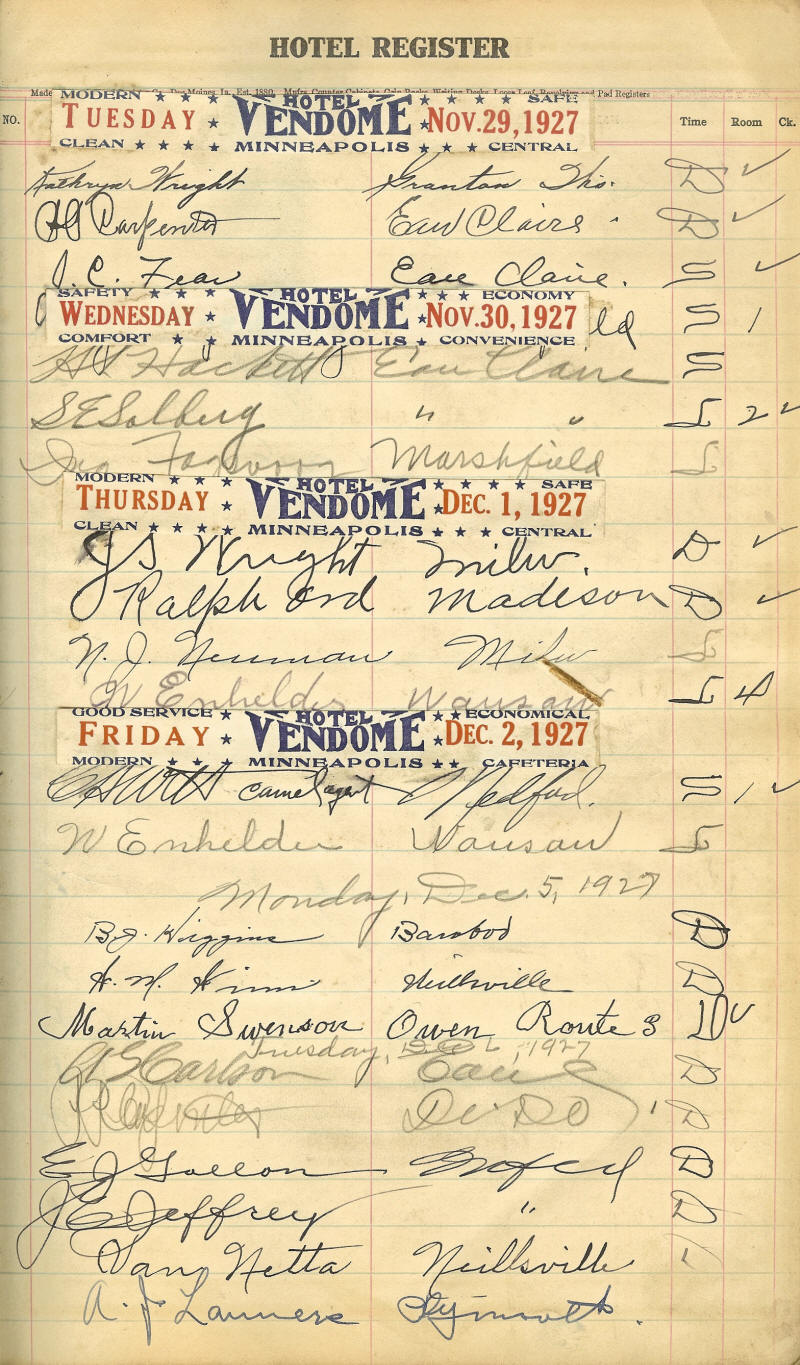 HOTEL REGISTER
Made Des Moines, Ia. Est. 1880. Mnfrs. Counter Cabinets, Grip Racks, Writing Desks, Loose Leaf, Revolving and Pad Registers
NO. Time Room Ck.
MODERN ★ ★ ★ HOTEL ★ ★ ★ ★ SAFE
TUESDAY ★ VENDOME ★ NOV. 29, 1927
CLEAN ★ ★ ★ ★ MINNEAPOLIS ★ ★ ★ CENTRAL
Kathryn Wright Granton Wis. D ✓
Carpenter Eau Claire D ✓
J. C. Fear Eau Claire. S ✓
SAFETY ★ ★ ★ HOTEL ★ ★ ★ ECONOMY
WEDNESDAY ★ VENDOME ★ NOV. 30, 1927 ld S 1
COMFORT ★ ★ MINNEAPOLIS ★ CONVENIENCE
Hackett Eau Claire S
S E Solberg " " L 2 ✓
Marshfield L
MODERN ★ ★ ★ HOTEL ★ ★ ★ ★ SAFE
THURSDAY ★ VENDOME ★ DEC. 1, 1927
CLEAN ★ ★ ★ ★ MINNEAPOLIS ★ ★ ★ CENTRAL
J S Wright Milw. D ✓
Ralph Ord Madison D ✓
N. J. Neuman Milw L
W Enhelder Wausau L 4
GOOD SERVICE ★ HOTEL ★ ★ ECONOMICAL
FRIDAY ★ VENDOME ★ DEC. 2, 1927
MODERN ★ ★ ★ MINNEAPOLIS ★ ★ CAFETERIA
Camel agent Medford. S 1 ✓
W Enhelder Wausau L
Monday, Dec. 5, 1927
B. J. Wiggins Baraboo D
H. M. Neillsville D
Martin Swenson Owen Route 3 D ✓
Tuesday, Dec 6, 1927
A S Carlson Eau C D
Do D
E J Gollon D
J E Jeffrey " D
Van Netta Neillsville
A. J. Launers Plymouth.